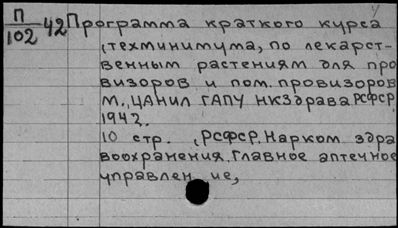 П/102 42 Программа краткого курса
(техминимума, по лекарст-
венным растениям для про
визоров и пом. провизоров
М., ЦАНИЛ ГАПУ НКЗдрава РСФСР
1942.
10 стр. (РСФСР. Нарком здра
воохранения. Главное аптечное
управлен ие,